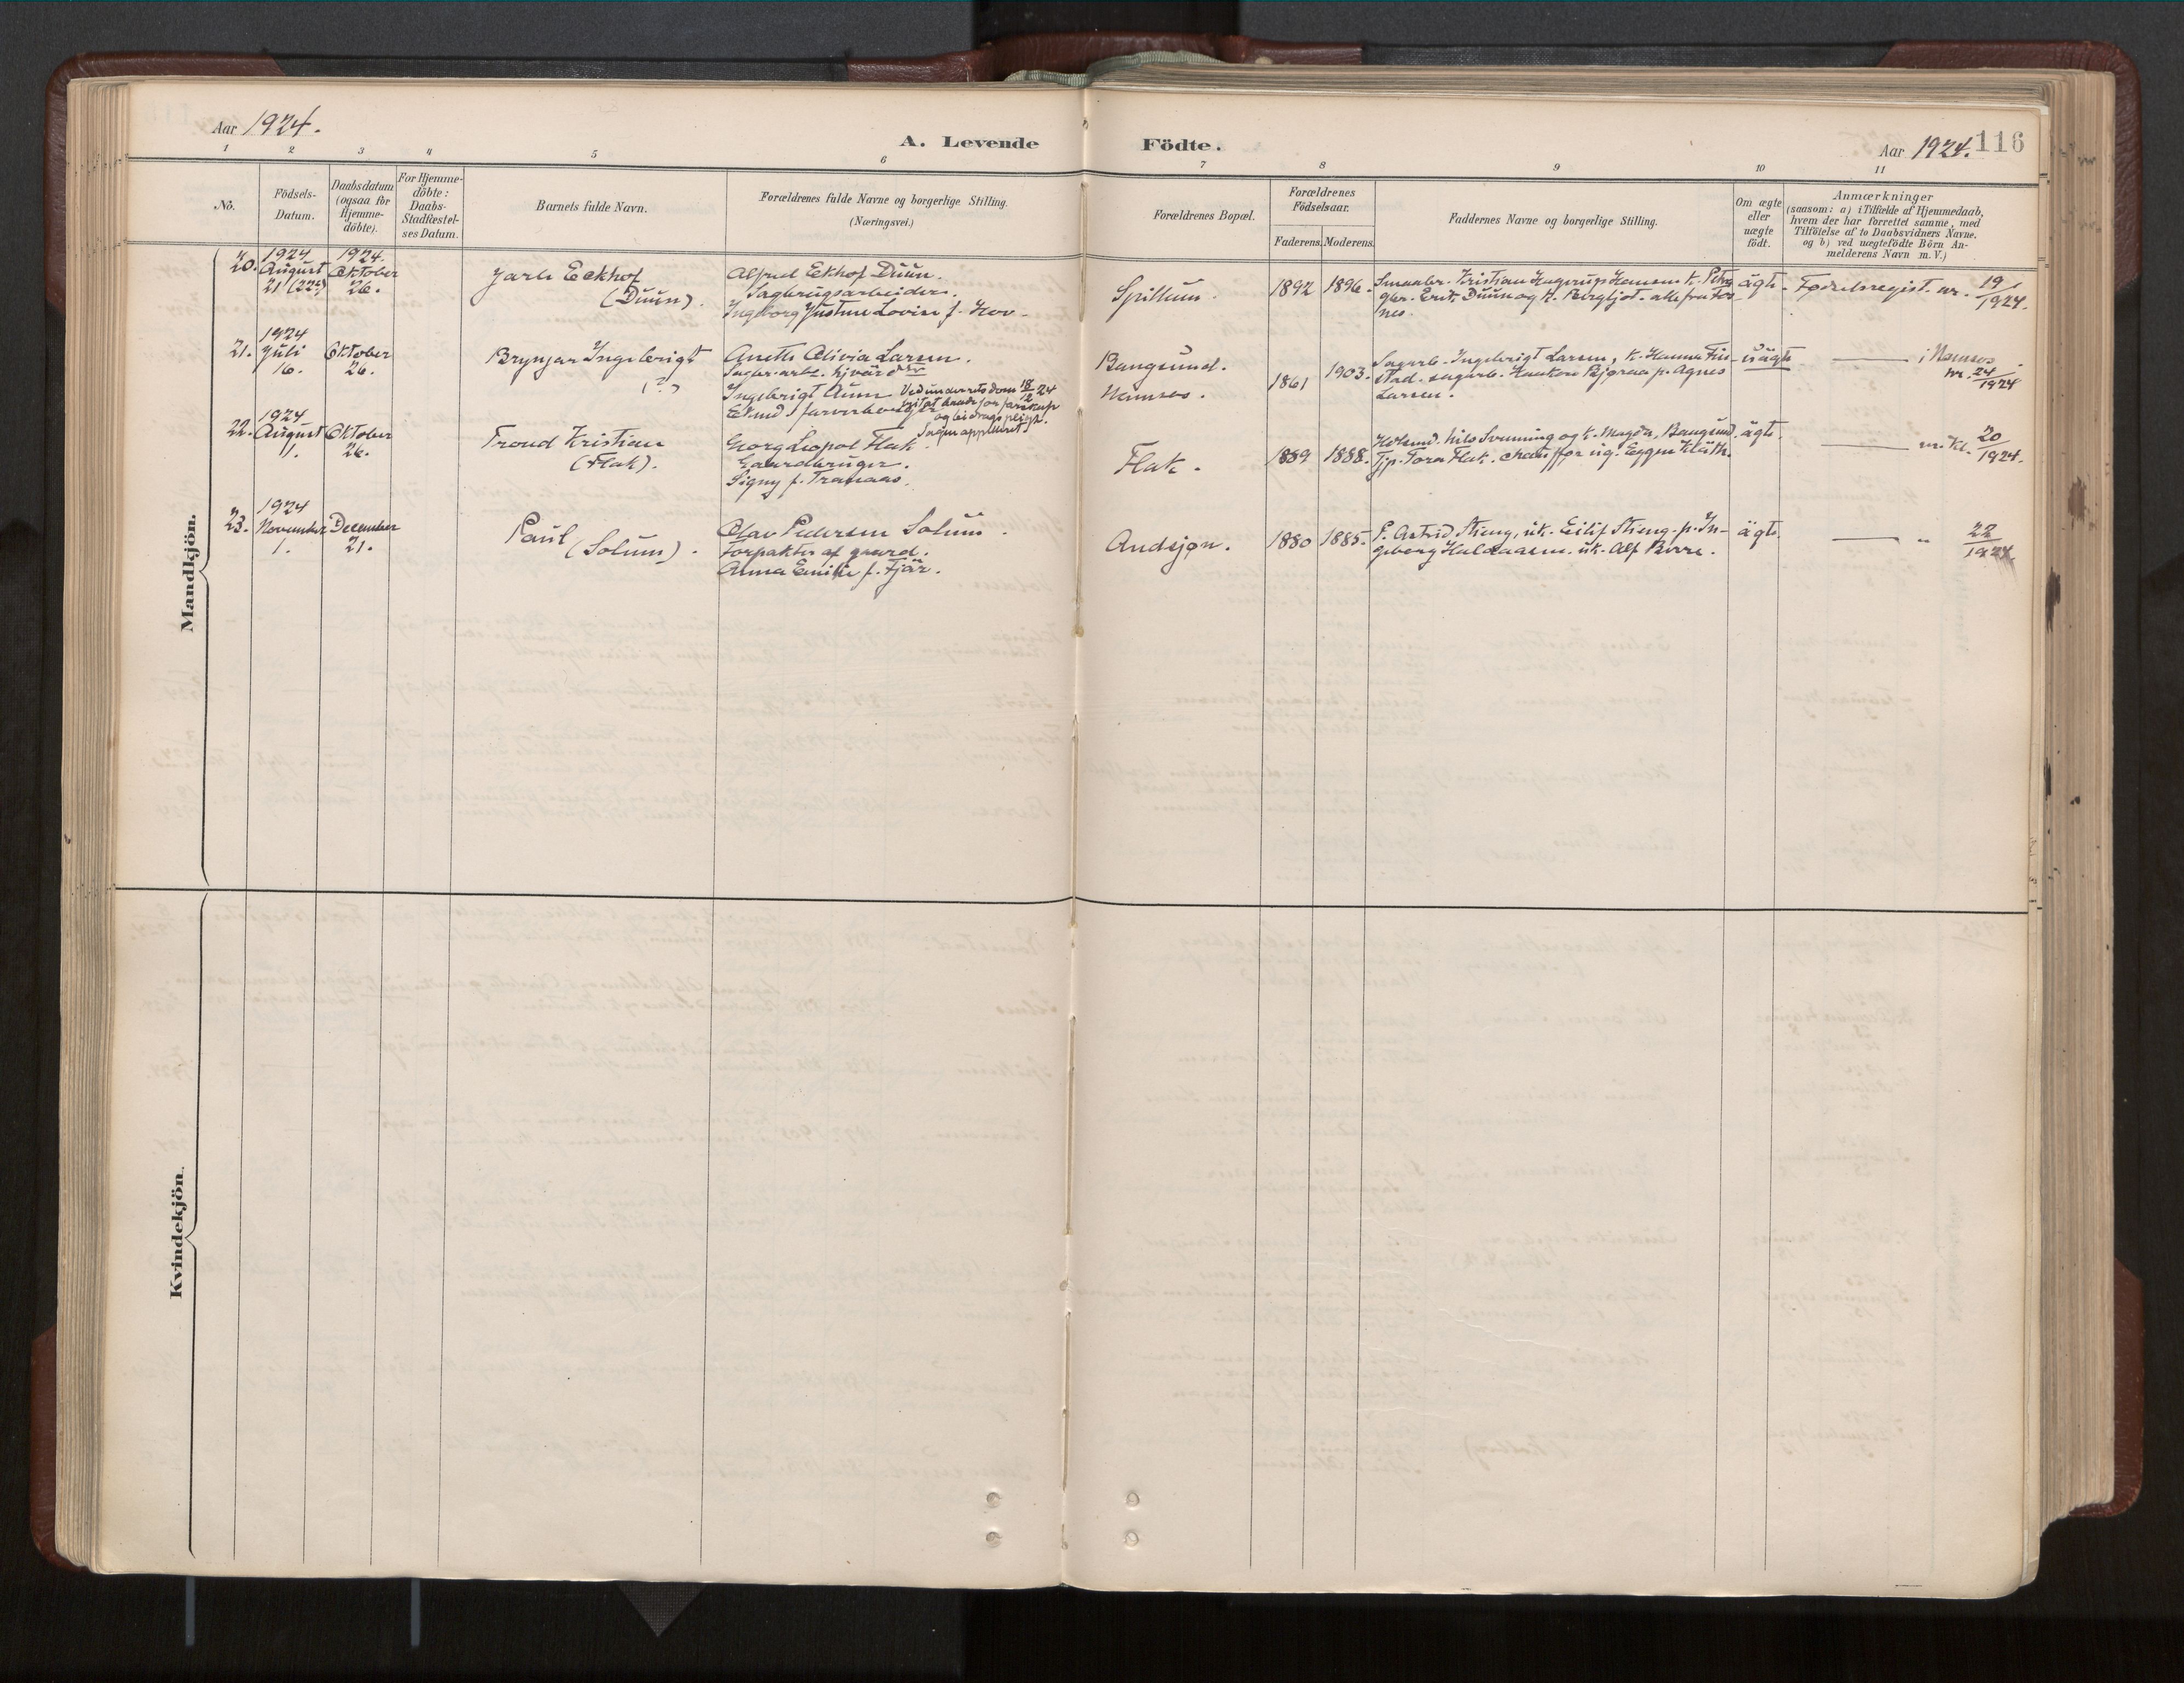 Aar 1924.
A. Levende Födte.
Aar 1924. 116
1 2 3 4 5 6 7 8 9 10 11
No.
Födsels-
Datum.
Daabsdatum
(ogsaa for
Hjemme-
döbte).
For Hjemme-
döbte:
Daabs-
Stadfæstel-
ses Datum.
Barnets fulde Navn.
Forældrenes fulde Navne og borgerlige Stilling.
(Næringsvei.)
Forældrenes Bopæl.
Forældrenes
Födselsaar.
Faderens. Moderens.
Faddernes Navne og borgerlige Stilling.
Om ægte
eller
uægte
födt.
Anmærkninger
(saasom: a) i Tilfælde af Hjemmedaab,
hvem der har forrettet samme, med
Tilföielse af to Daabsvidners Navne.
og b) ved uægtefödte Börn An-
melderens Navn m. V.)
Mandkjön.
20.
1924
August
21 (22)
1924.
Oktober
26.
Jarle Eckhof
(Duun).
Alfred Ekhof Duun.
Sagbrugsarbeider.
Ingeborg Justine Lovise f. Hov
Spillum.
1892 1896.
Kristian Hansen k. Petra
gbr. Erik Duun og k. Bergljot. alle fra Fos-
nes.
ägte.
Fødselsregist. nr. 19/1924.
21.
1924
Juli
16.
Oktober
26.
Brynjar Ingebrigt
(?)
Anette Olivia Larsen.
Ingebrigt Aunn
Ved underretsdom 18/12 24
og bidragspligt.
Sagen appelleret
Bangsund.
Namsos.
1861
1903.
Sagarb. Ingebrigt Larsen, k. Hanna Fin-
stad. sagarb. Haakon Bjøraa p. Agnes
Larsen.
uägte
— i Namsos
nr. 24/1924
22.
1924
August
1.
Oktober
26.
Trond Kristian
(Flak).
Georg Leopol Flak.
Gaardbruger.
Signy f. Tranaas.
Flak.
1889 1888.
Nils Svenning og k. Magda, Bangsund.
Tjp. Tora Flak. chauffør ug. Eggen Kläth.
ägte.
— nr. Kl. 20/1924.
23.
1924
November
1.
December
21.
Paul (Solum).
Olav Pedersen Solum.
Forpakter af gaard.
Anna Emilie f. Fjär.
Andsjøn.
1880 1885.
P. Astrid Stieng, uk. Eilif Stieng. p. In-
geborg Haldaasen. uk. Alf Berre.
ägte.
— „ 22/1924
Kvindekjön.